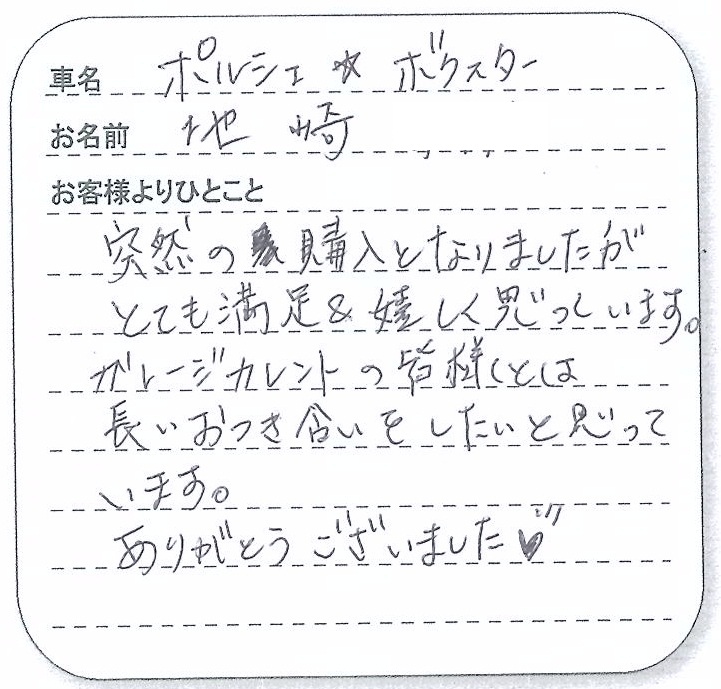 車名 ポルシェ ☆ ボクスター
お名前 地崎
お客様よりひとこと
突然の 購入となりましたが
とても満足&嬉しく思っています。
ガレージカレントの皆様とは
長いおつき合いをしたいと思って
います。
ありがとうございました♥